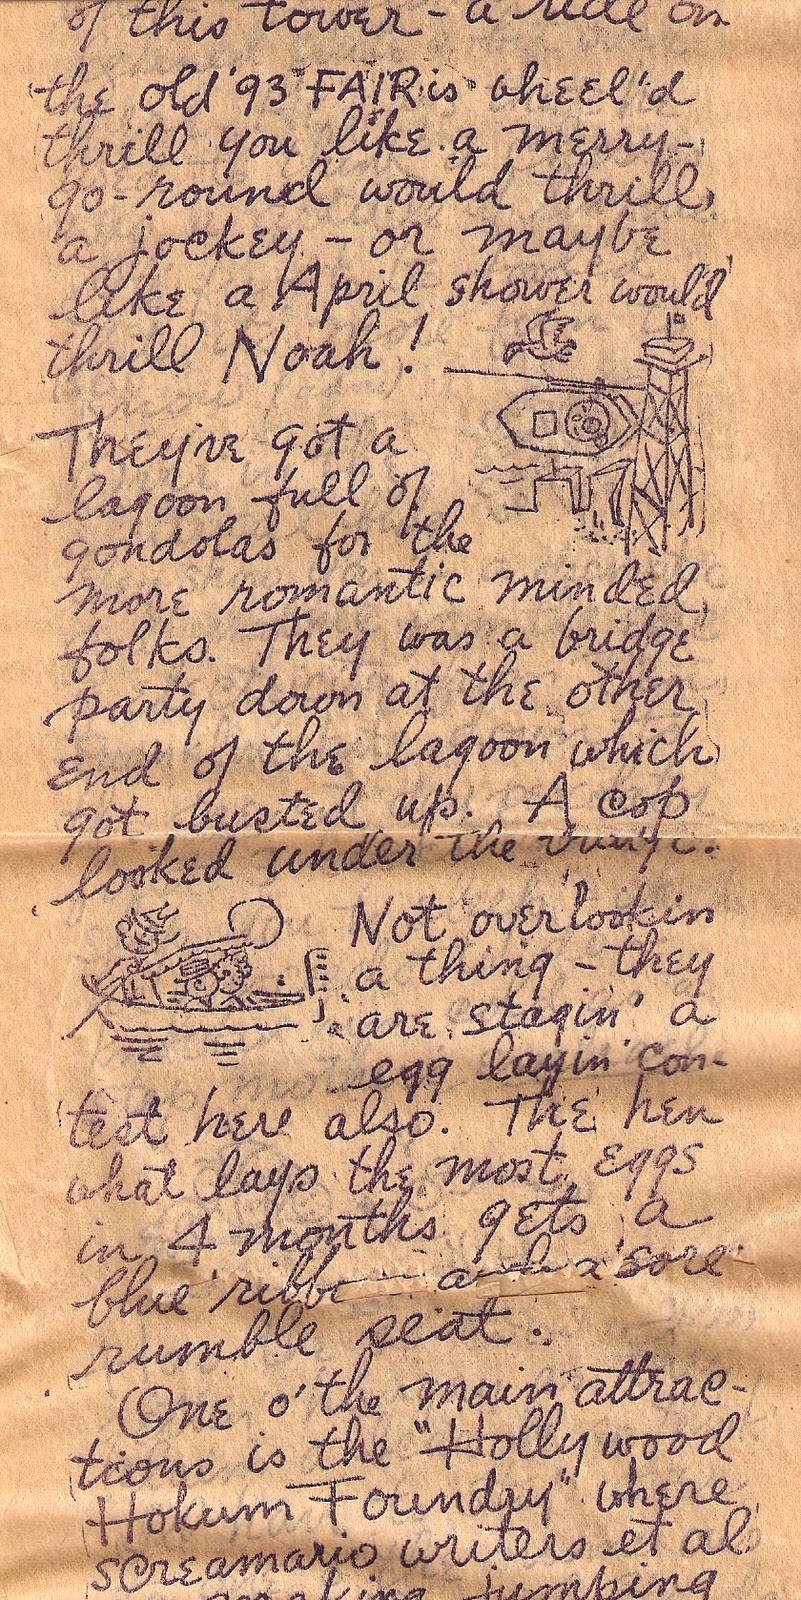 of this tower - a ride on
the old '93 FAIRis wheel'd
thrill you like a merry-
go-round would thrill
a jockey - or maybe
like a April shower would
thrill Noah!
They've got a
lagoon full of
gondolas for the
more romantic minded
folks. They was a bridge
party down at the other
end of the lagoon which
got busted up. A cop
looked under the
Not overlookin
a thing - they
are stagin' a
egg layin' con-
test here also. The hen
what lays the most eggs
in 4 months gets a
blue and a sore
rumble seat.
One o' the main attrac-
tions is the "Hollywood
Hokum Foundry" where
screamario writers et al
jumping